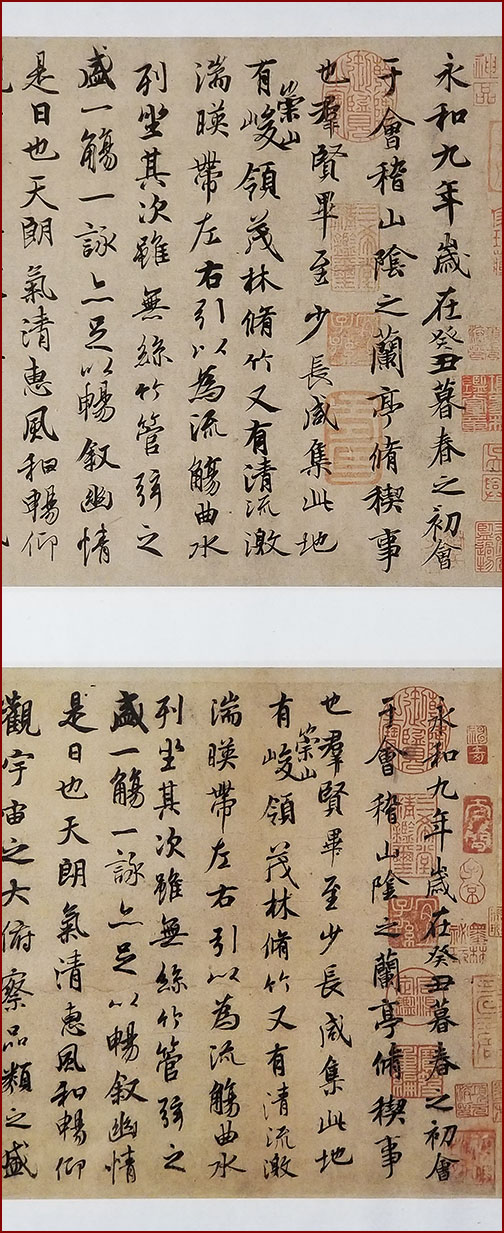 永和九年歲在癸丑暮春之初會
于會稽山陰之蘭亭脩稧事
也羣賢畢至少長咸集此地
有崇山峻領茂林脩竹又有清流激
湍暎帶左右引以為流觴曲水
列坐其次雖無絲竹管弦之
盛一觴一詠亦足以暢敘幽情
是日也天朗氣清惠風和暢仰
永和九年歲在癸丑暮春之初會
于會稽山陰之蘭亭脩稧事
也羣賢畢至少長咸集此地
有崇山峻領茂林脩竹又有清流激
湍暎帶左右引以為流觴曲水
列坐其次雖無絲竹管弦之
盛一觴一詠亦足以暢敘幽情
是日也天朗氣清惠風和暢仰
觀宇宙之大俯察品類之盛